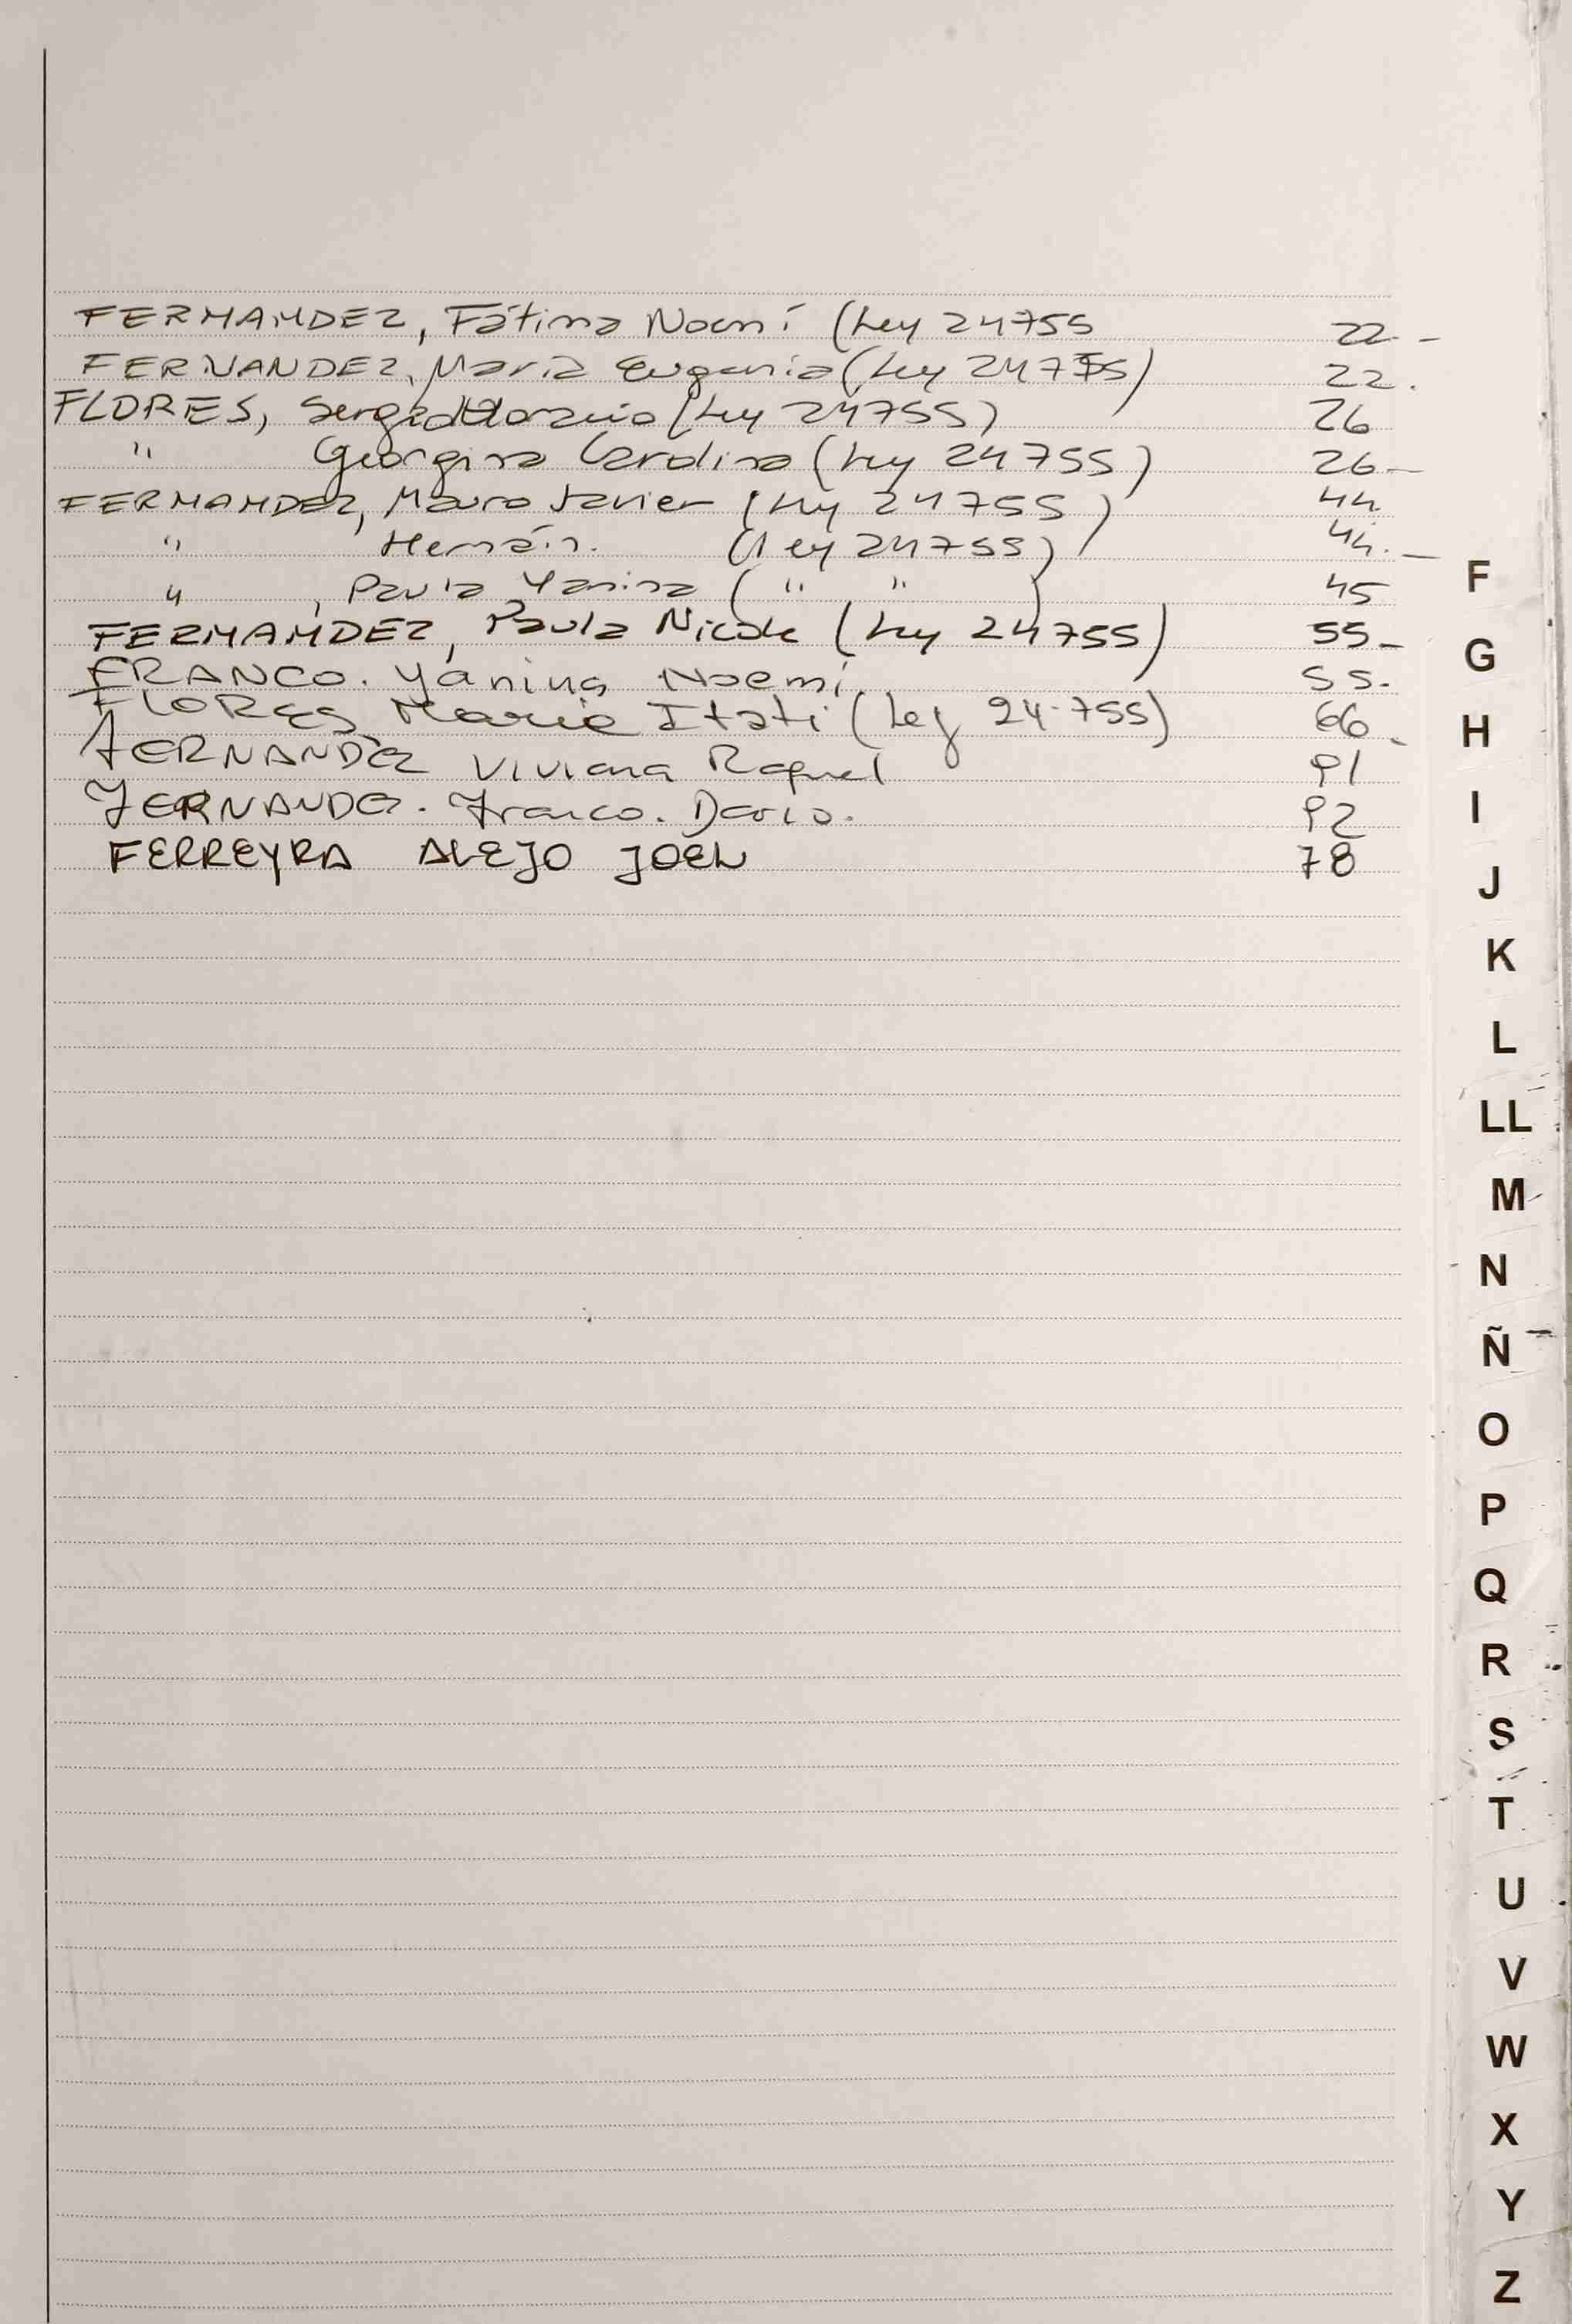 FERNANDEZ, Fátima Noemí (Ley 24755 22.-
FERNANDEZ, María Eugenia (Ley 24755) 22.
FLORES, Sergio Horacio (Ley 24755) 26
" Georgina Carolina (Ley 24755) 26-
FERNANDEZ, Mauro Javier (Ley 24755) 44
" Hernán. (Ley 24755) 44.-
" , Paula Yanina ( " " ) 45
FERNANDEZ, Paula Nicole (Ley 24755) 55-
FRANCO. Yanina Noemí 55.
FLORES Maria Itati (Ley 24.755) 66.
FERNANDEZ Viviana Raquel 91
FERNANDEZ. Franco. Dario. 92
FERREYRA ALEJO JOEL 78
F
G
H
I
J
K
L
LL
M
N
Ñ
O
P
Q
R
S
T
U
V
W
X
Y
Z